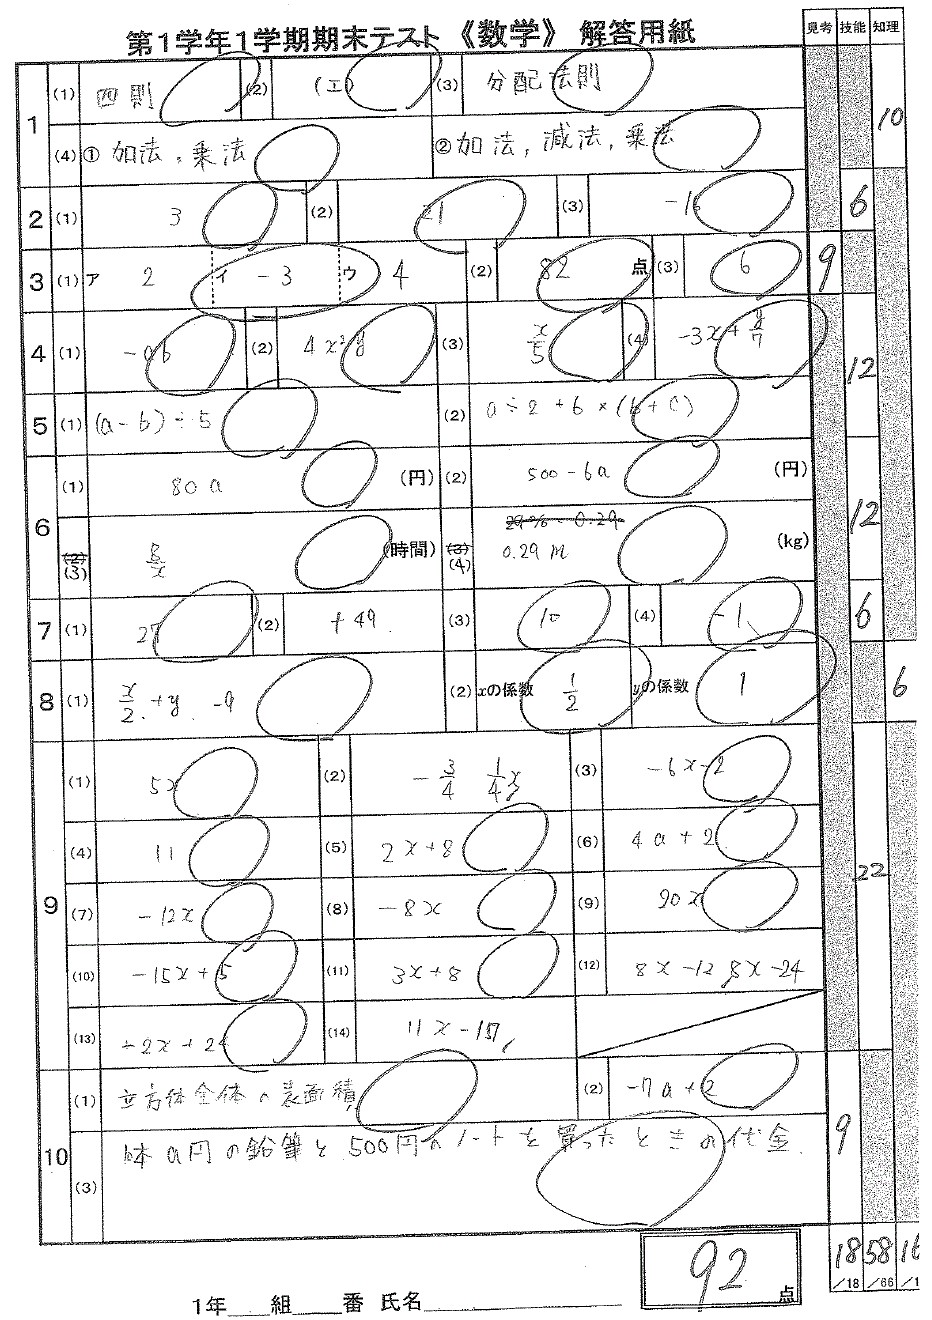 第1学年1学期期末テスト 《数学》 解答用紙
見考 技能 知理
1 (1) 四則 (2) (エ) (3) 分配法則
10
(4) ① 加法, 乗法 ② 加法, 減法, 乗法
2 (1) 3 (2) 21 (3) -16
6
3 (1) ア 2 イ -3 ウ 4 (2) 82 点 (3) 6
9
4 (1) -ab (2) 4x²y (3) x/5 (4) -3x+y/7
12
5 (1) (a-b)÷5 (2) a÷2+6×(b+c)
6 (1) 80a (円) (2) 500-6a (円)
12
(2) (3) 8/x (時間) (3) (4) 29% 0.29 0.29m (kg)
7 (1) 27 (2) +49 (3) 10 (4) -1
6
8 (1) x/2+y-9 (2) xの係数 1/2 yの係数 1
6
9 (1) 5x (2) -3/4 1/4x (3) -6x-2
(4) 11 (5) 2x+8 (6) 4a+2
22
(7) -12x (8) -8x (9) 90x
(10) -15x+5 (11) 3x+8 (12) 8x-12 8x-24
(13) -2x+24 (14) 11x-157
10 (1) 立方体全体の表面積 (2) -7a+2
9
(3) 1本a円の鉛筆と500円のノートを買ったときの代金
18 58 16
/18 /66 /1
92 点
1年 組 番 氏名